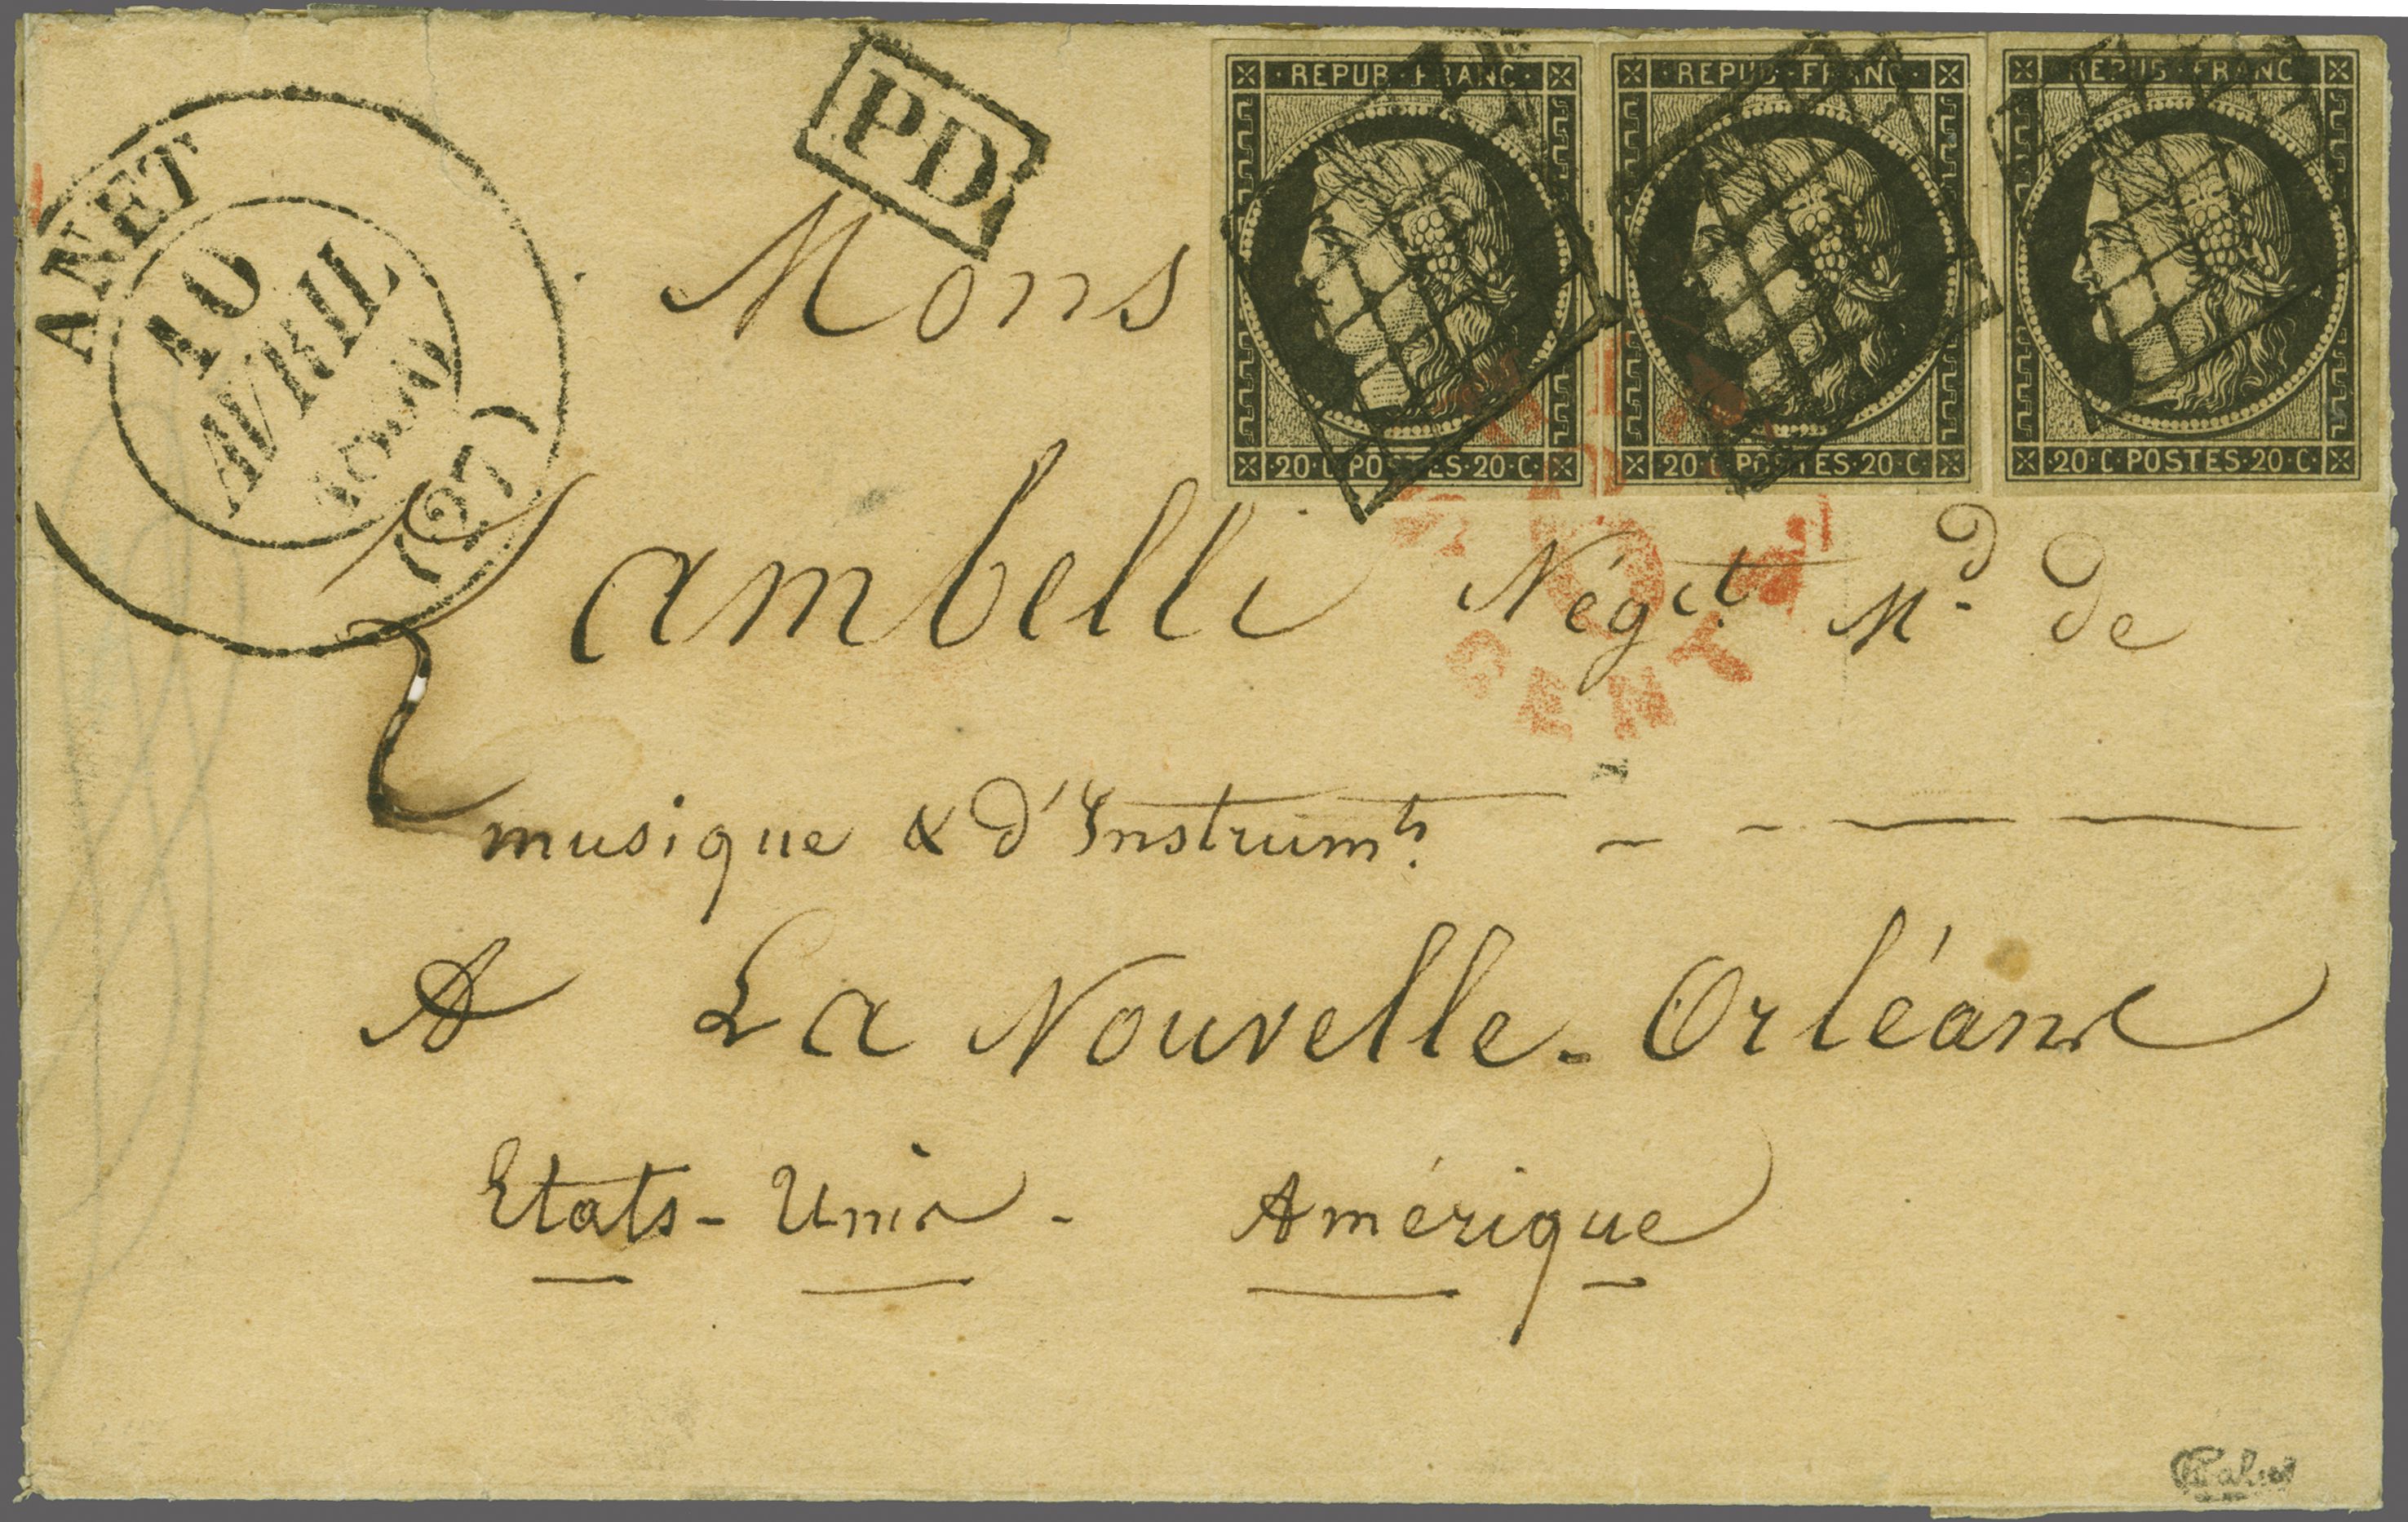 ANET
10
AVRIL
1850
(27)
PD
REPUB · FRANC ·
20 · C · POSTES · 20 · C ·
REPUB · FRANC ·
20 · C · POSTES · 20 · C ·
REPUB · FRANC
20 · C POSTES · 20 · C ·
Mons
Zambelli Négt. Md. de
CENTS
musique & d'Instrumts.
A La Nouvelle-Orléans
Etats-Unis - Amérique
Calves